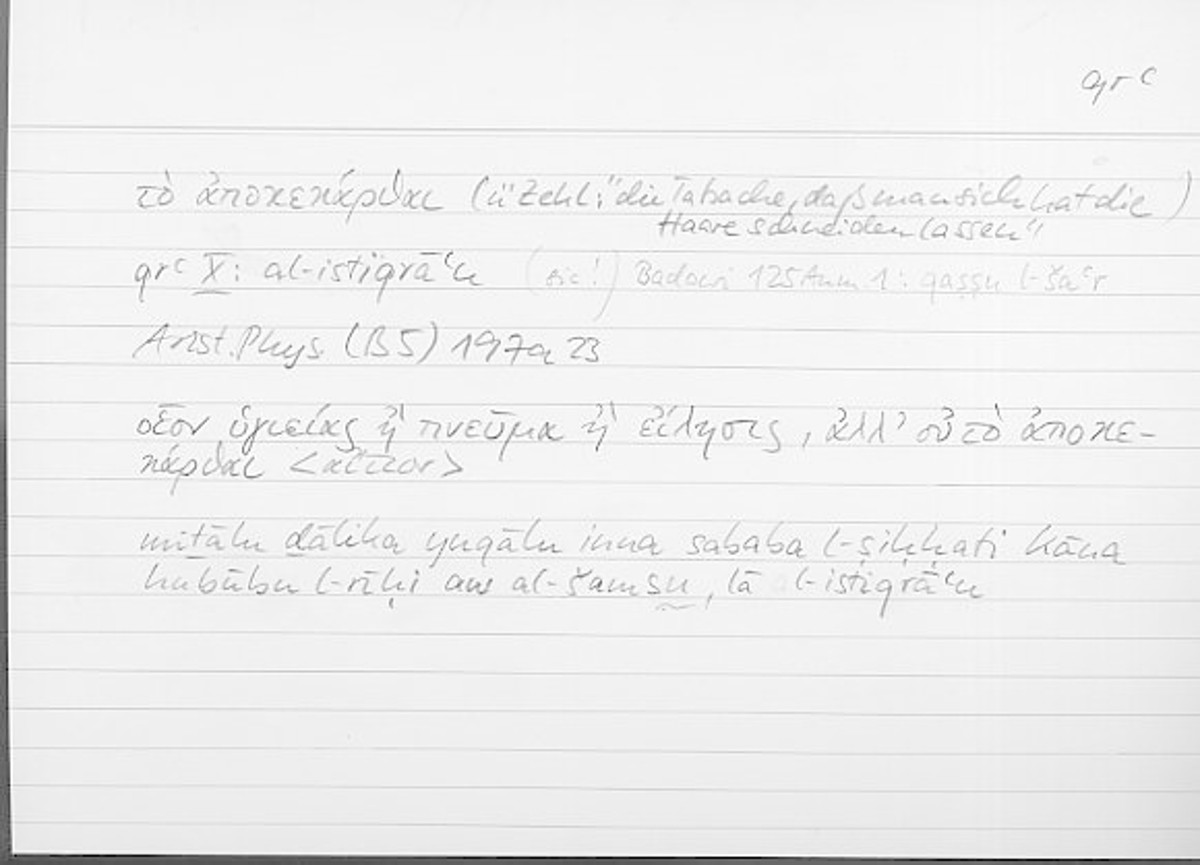 qrᶜ
τὸ ἀποκεκάρθαι (ü Zekl: "die Tatsache, daß man sich hat die
Haare schneiden lassen")
qrᶜ X: al-istiqrāᶜu (sic!) Badawi 125 Anm 1: qaṣṣu l-šaᶜr
Arist. Phys. (B5) 197a 23
οἷον ὑγιείας ἢ πνεῦμα ἢ εἵλησις, ἀλλ' οὐ τὸ ἀποκε-
κάρθαι <αἴτιον>
miṯālu ḏālika yuqālu inna sababa l-ṣiḥḥati kāna
hubūbu l-rīḥi aw al-šamsu, lā l-istiqrāᶜu